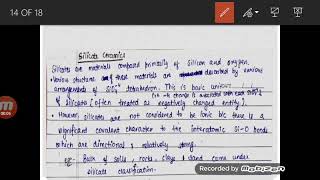 14 OF 18
Silicate Ceramics
Silicates are materials composed primarily of Silicon and oxygen.
• Various structure of these materials are described by various
arrangements of SiO4^4- tetrahedron. This is basic unit
(as -4 charge is associated with each
of silicates [often treated as negatively charged entity].
• However, silicates are not considered to be ionic b/c there is a
significant covalent character to the interatomic Si-O bonds
which are directional & relatively strong.
eg:- Bulk of soils, rocks, clays & sand come under
silicate classification.
00:06
Recorded by